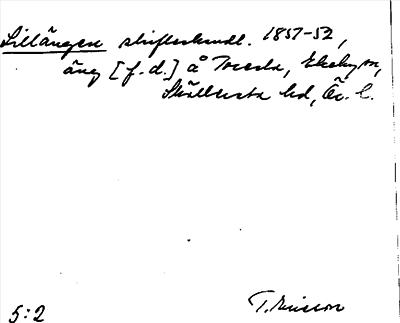 Lillängen skifteshandl. 1857-52,
äng [f.d.] å Torsta, Ekeby sn,
Skyllersta hd, Ör. l.
5:2 T. Ericsson